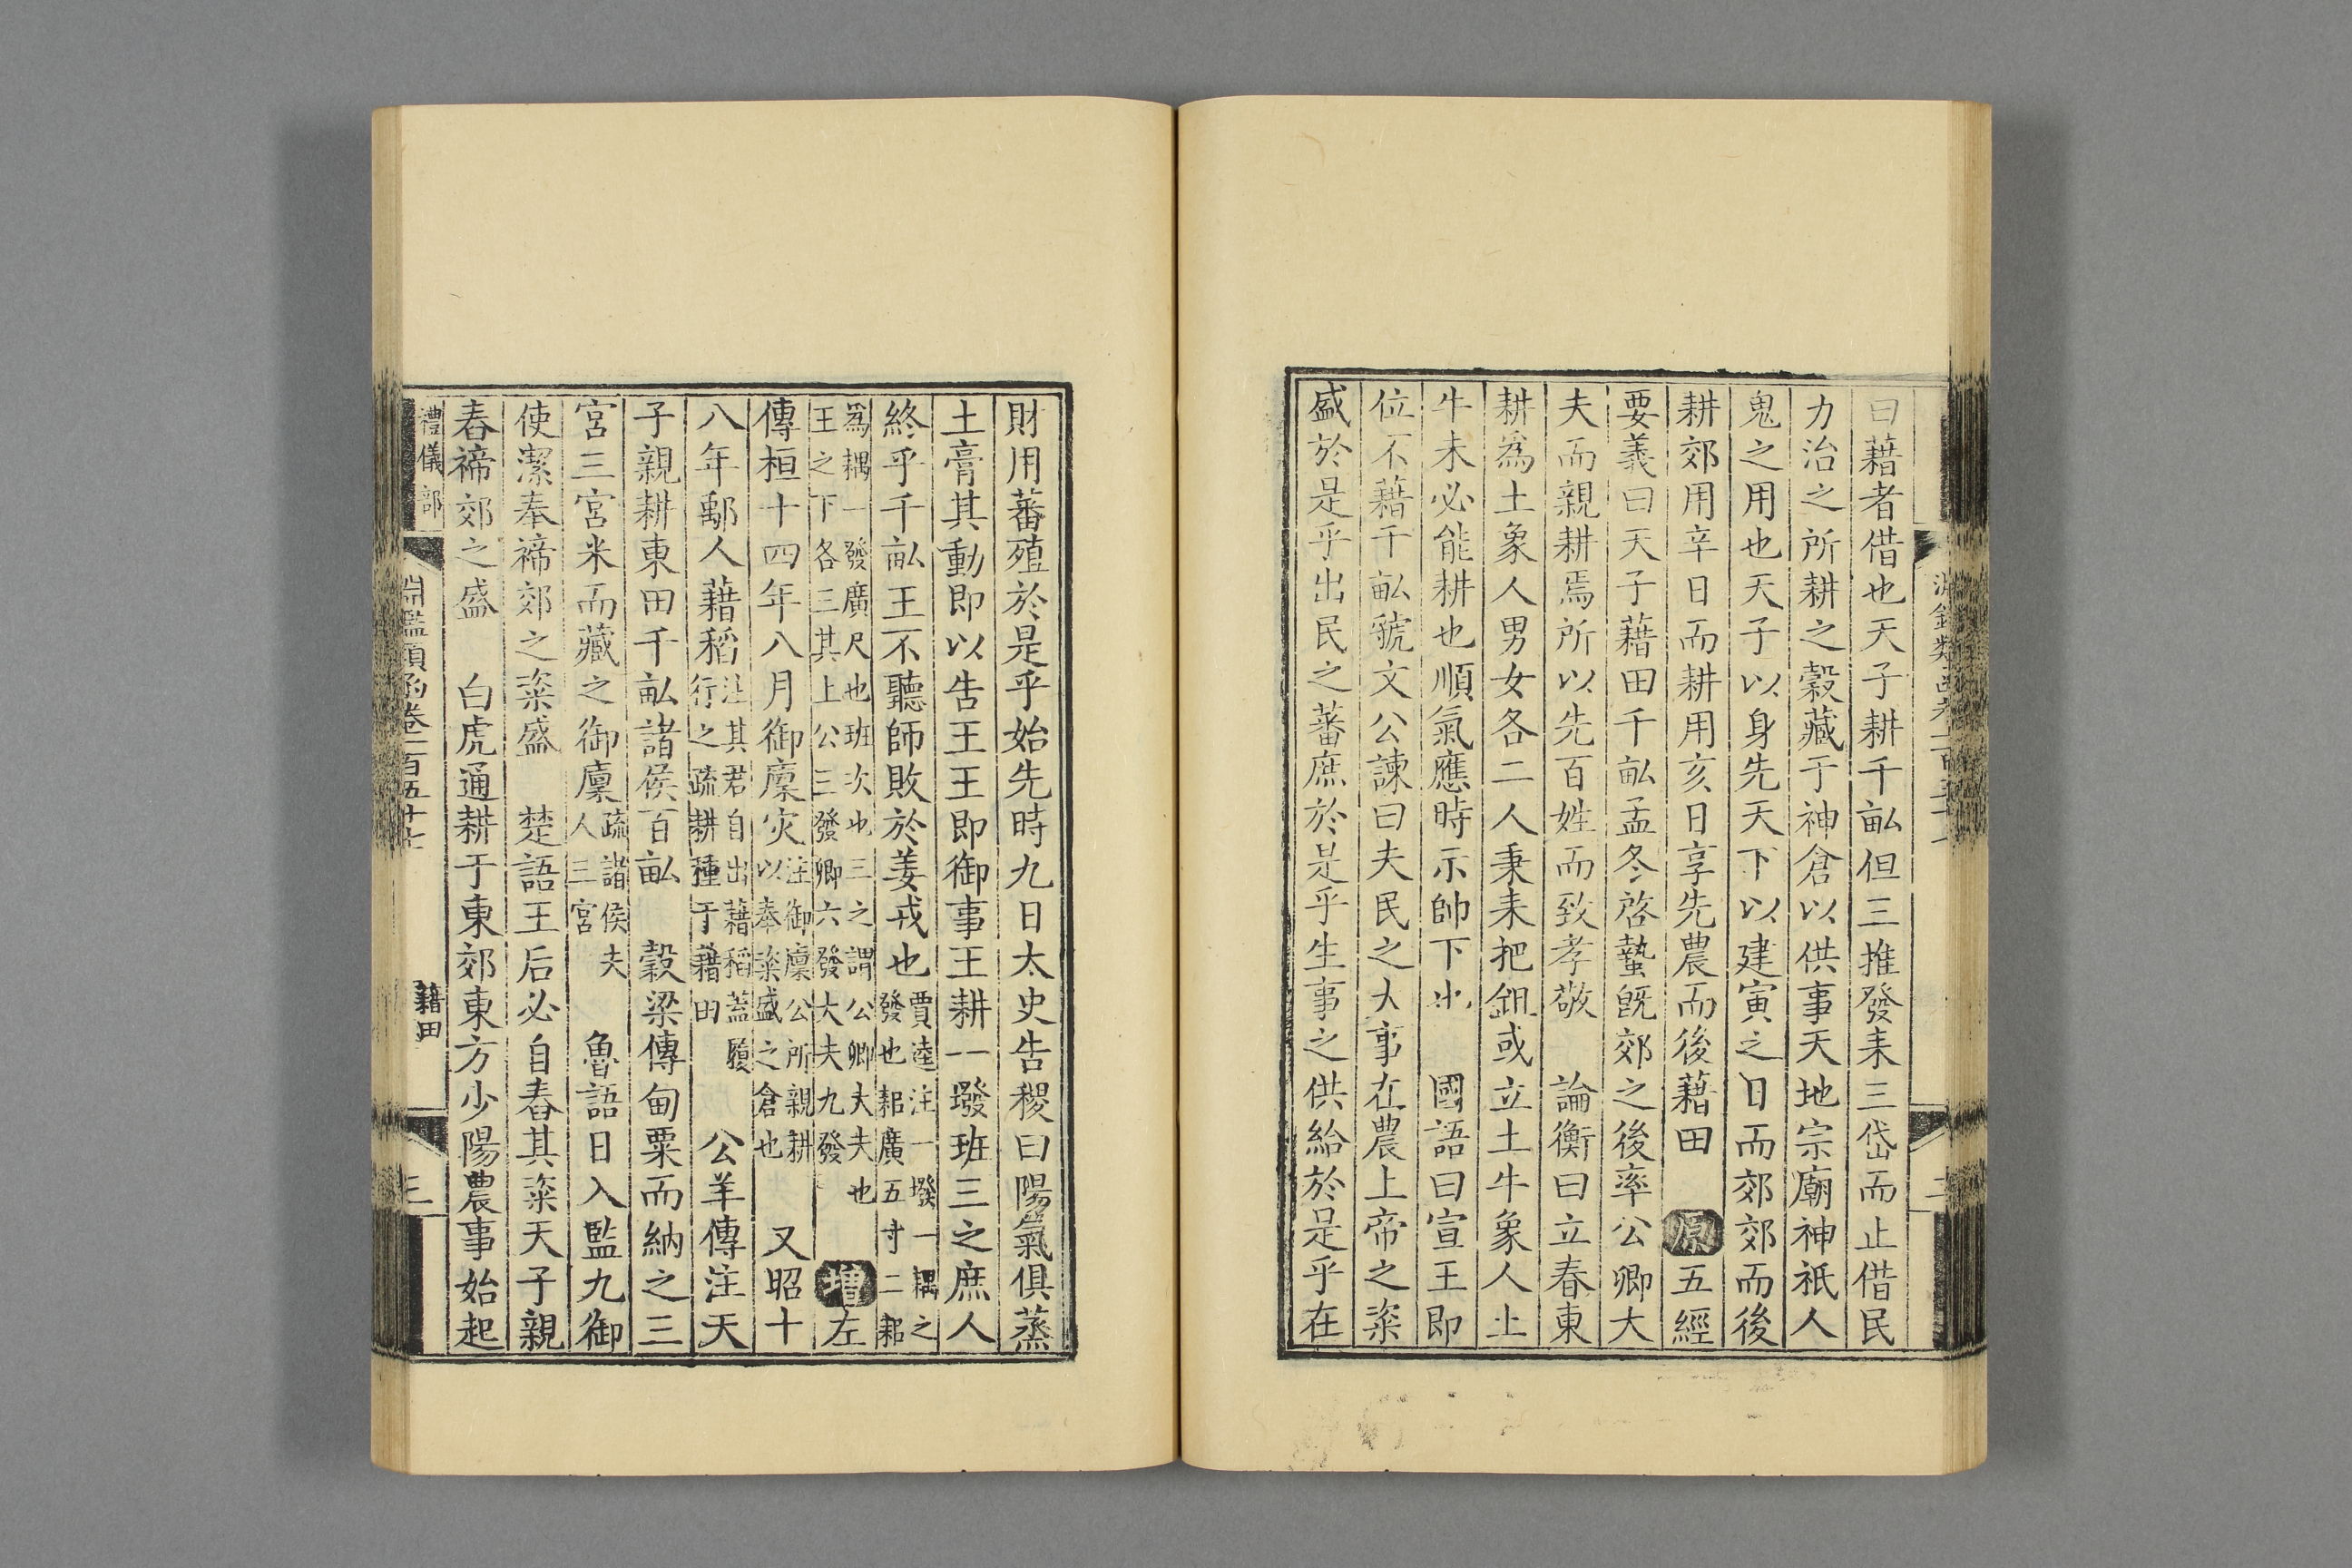 曰藉者借也天子耕千畝但三推發耒三岱而止借民
力治之所耕之穀藏于神倉以供事天地宗廟神祇人
鬼之用也天子以身先天下以建寅之日而郊郊而後
耕郊用辛日而耕用亥日享先農而後藉田 原 五經
要義曰天子藉田千畝孟冬啓蟄旣郊之後率公卿大
夫而親耕焉所以先百姓而致孝敬 論衡曰立春東
耕爲土象人男女各二人秉耒把鉏或立土牛象人土
牛未必能耕也順氣應時示帥下也 國語曰宣王即
位不藉千畝虢文公諫曰夫民之大事在農上帝之粢
盛於是乎出民之蕃庶於是乎生事之供給於是乎在
財用蕃殖於是乎始先時九日太史告稷曰陽氣俱蒸
土膏其動即以告王王即御事王耕一墢班三之庶人
終乎千畝王不聽師敗於姜戎也 賈逵注一墢一耦之
發也耜廣五寸二耜
爲耦一發廣尺也班次也三之謂公卿大夫也
王之下各三其上公三發卿六發大夫九發 增 左
傳桓十四年八月御廩灾 注御廩公所親耕
以奉粢盛之倉也 又昭十
八年鄅人藉稻 注其君自出藉稻蓋履
行之疏耕種于藉田 公羊傳注天
子親耕東田千畝諸侯百畝 穀梁傳甸粟而納之三
宮三宮米而藏之御廩 疏諸侯夫
人三宮 魯語日入監九御
使潔奉禘郊之粢盛 楚語王后必自舂其粢天子親
舂禘郊之盛 白虎通耕于東郊東方少陽農事始起
禮儀部
淵鑑類函卷一百五十七
藉田
三